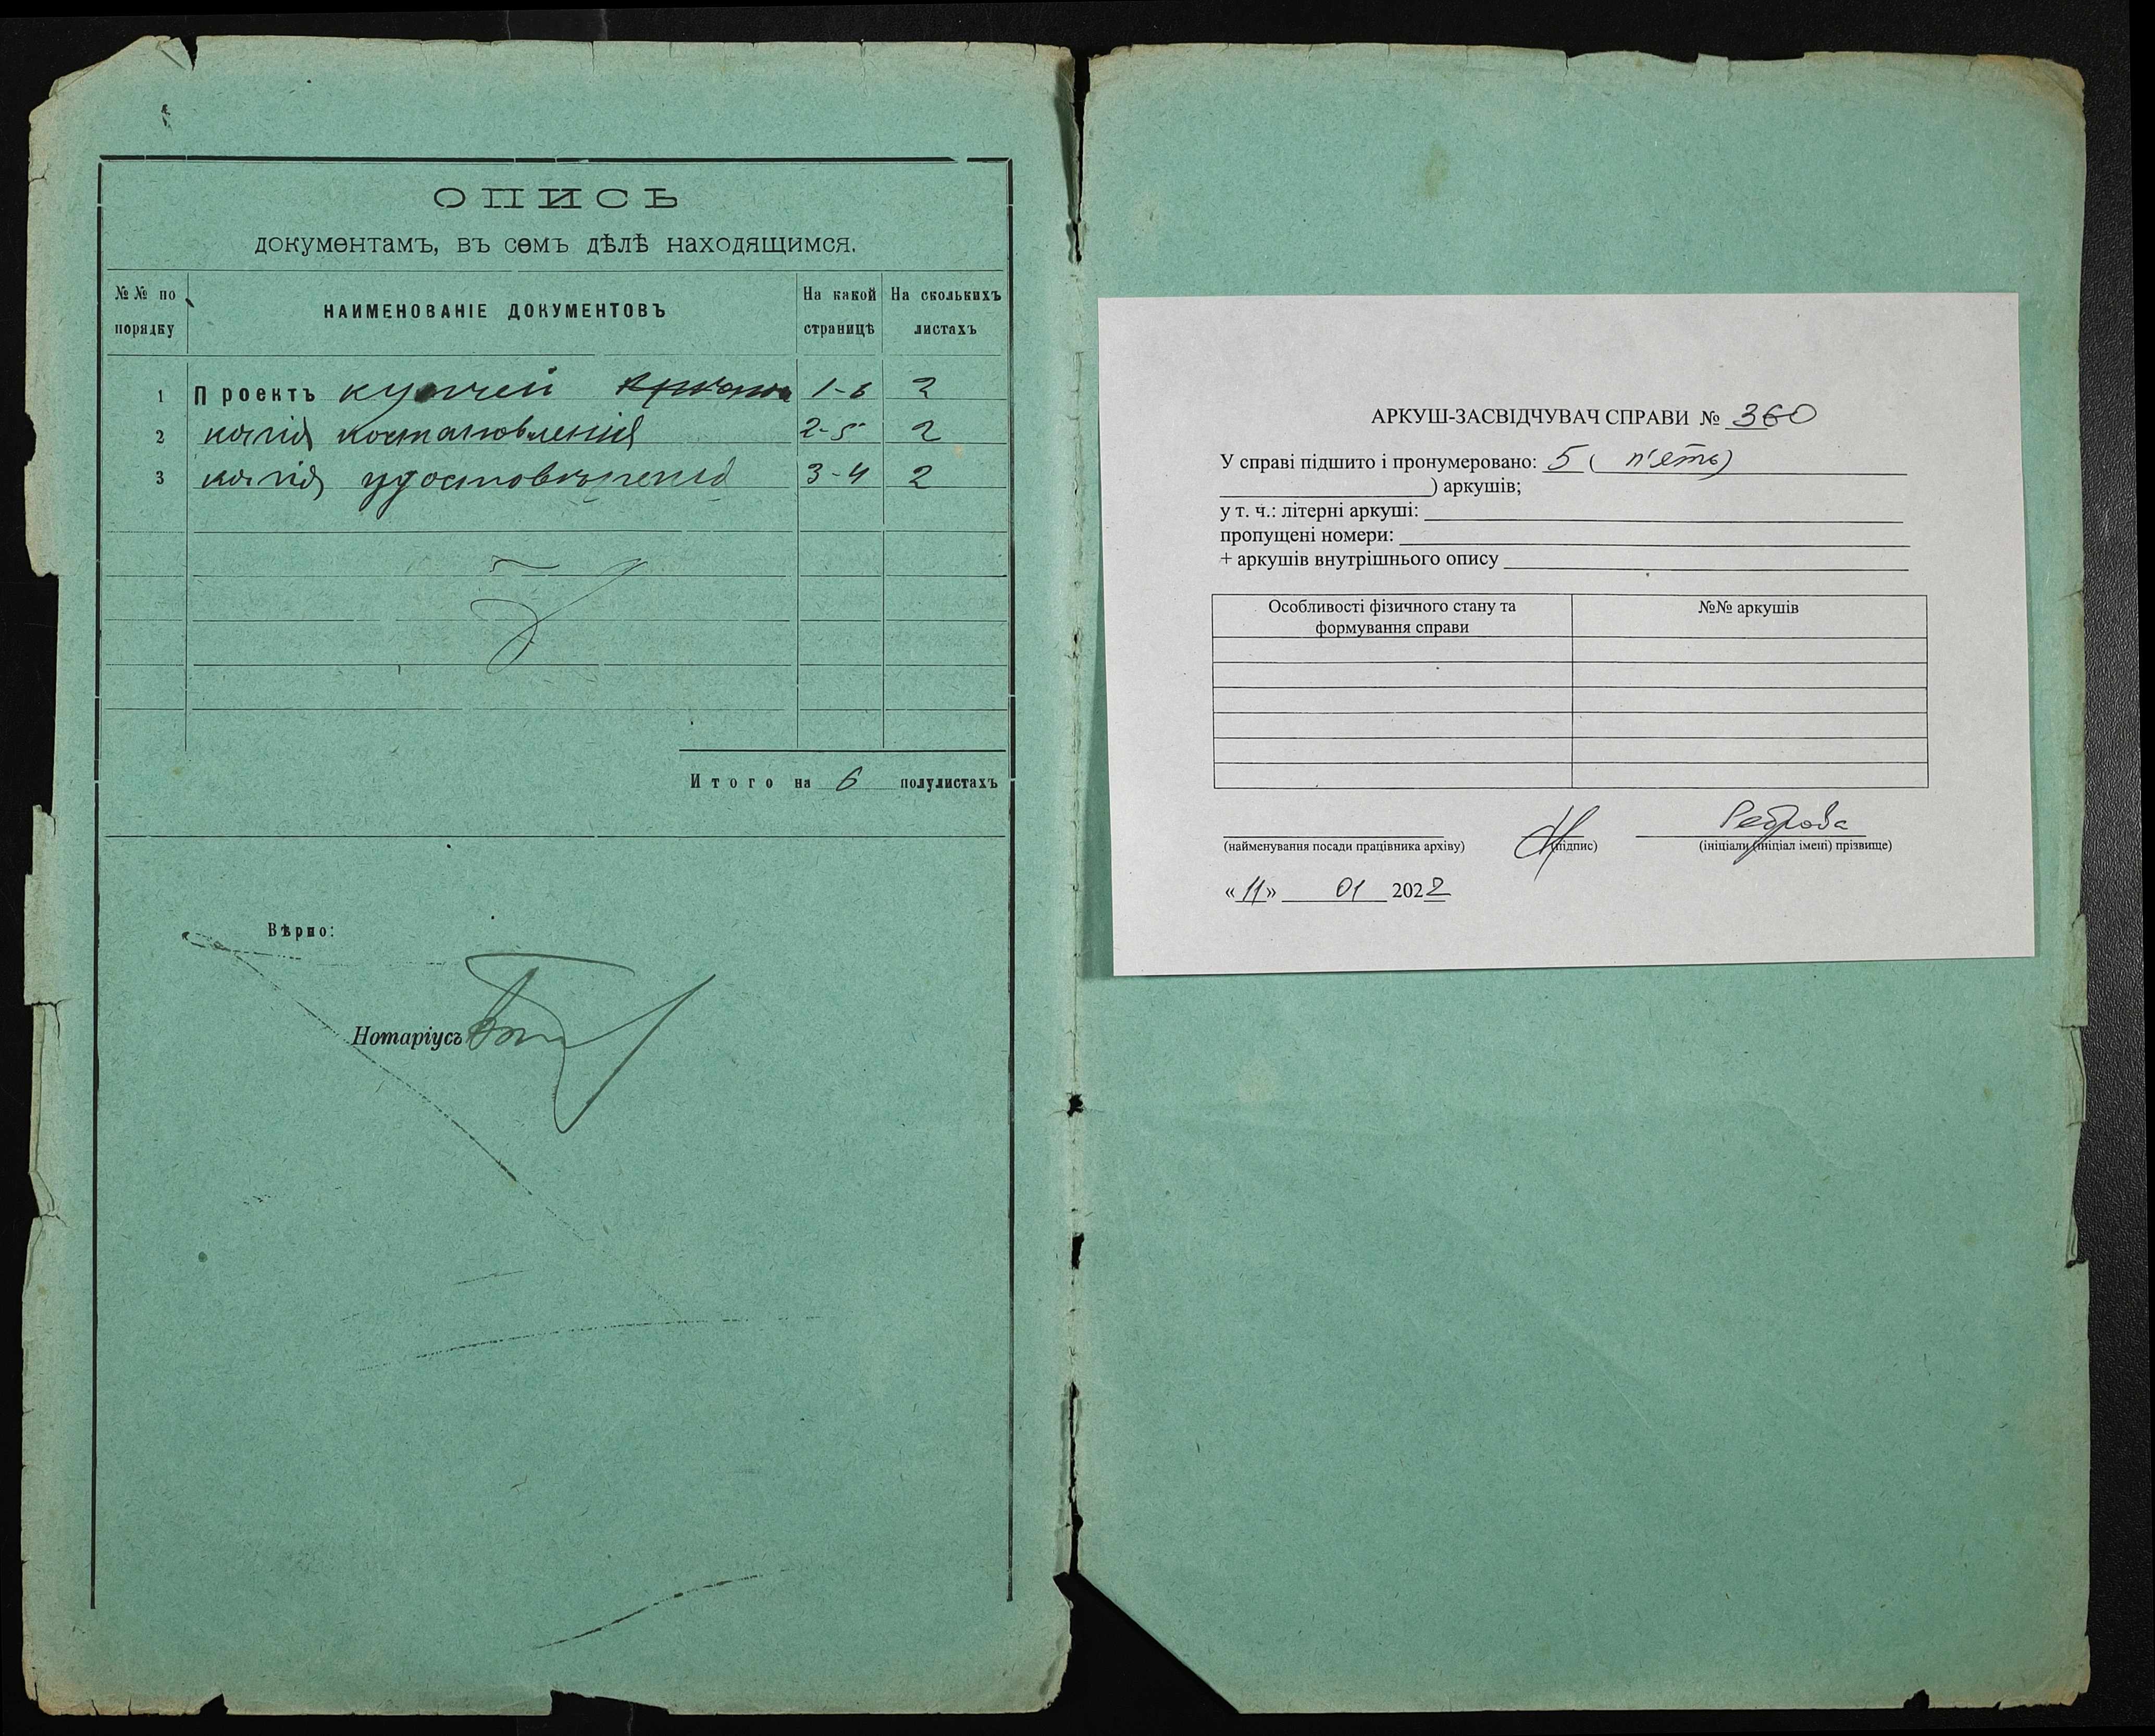 ОПИСЬ
документамъ, въ семъ дѣлѣ находящимся.
№№ по порядку
НАИМЕНОВАНІЕ ДОКУМЕНТОВЪ
На какой страницѣ
На сколькихъ листахъ
1 Проектъ купчей 1-6 2
2 копія постановленія 2-5 2
3 копія удостовѣренія 3-4 2
Итого на 6 полулистахъ
Вѣрно:
Нотаріусъ
АРКУШ-ЗАСВІДЧУВАЧ СПРАВИ № 360
У справі підшито і пронумеровано: 5 ( п'ять)
) аркушів;
у т. ч.: літерні аркуші:
пропущені номери:
+ аркушів внутрішнього опису
Особливості фізичного стану та формування справи
№№ аркушів
Реброва
(найменування посади працівника архіву) (підпис) (ініціали (ініціал імені) прізвище)
«11» 01 2022